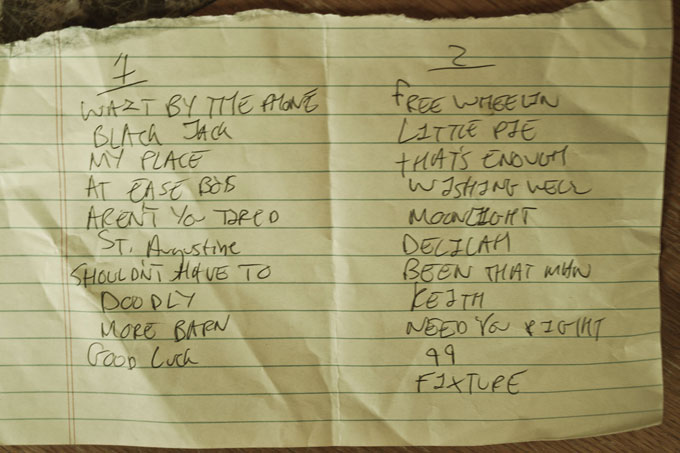 1
WAIT BY THE PHONE
BLACK JACK
MY PLACE
AT EASE BOB
AREN'T YOU TIRED
ST. Augustine
SHOULDN'T HAVE TO
DOODLY
MORE BARN
Good Luck
2
FREE WHEELIN
LITTLE PIE
THAT'S ENOUGH
WISHING WELL
MOONLIGHT
DELILAH
BEEN THAT MAN
KEITH
NEED YOU RIGHT
99
FIXTURE